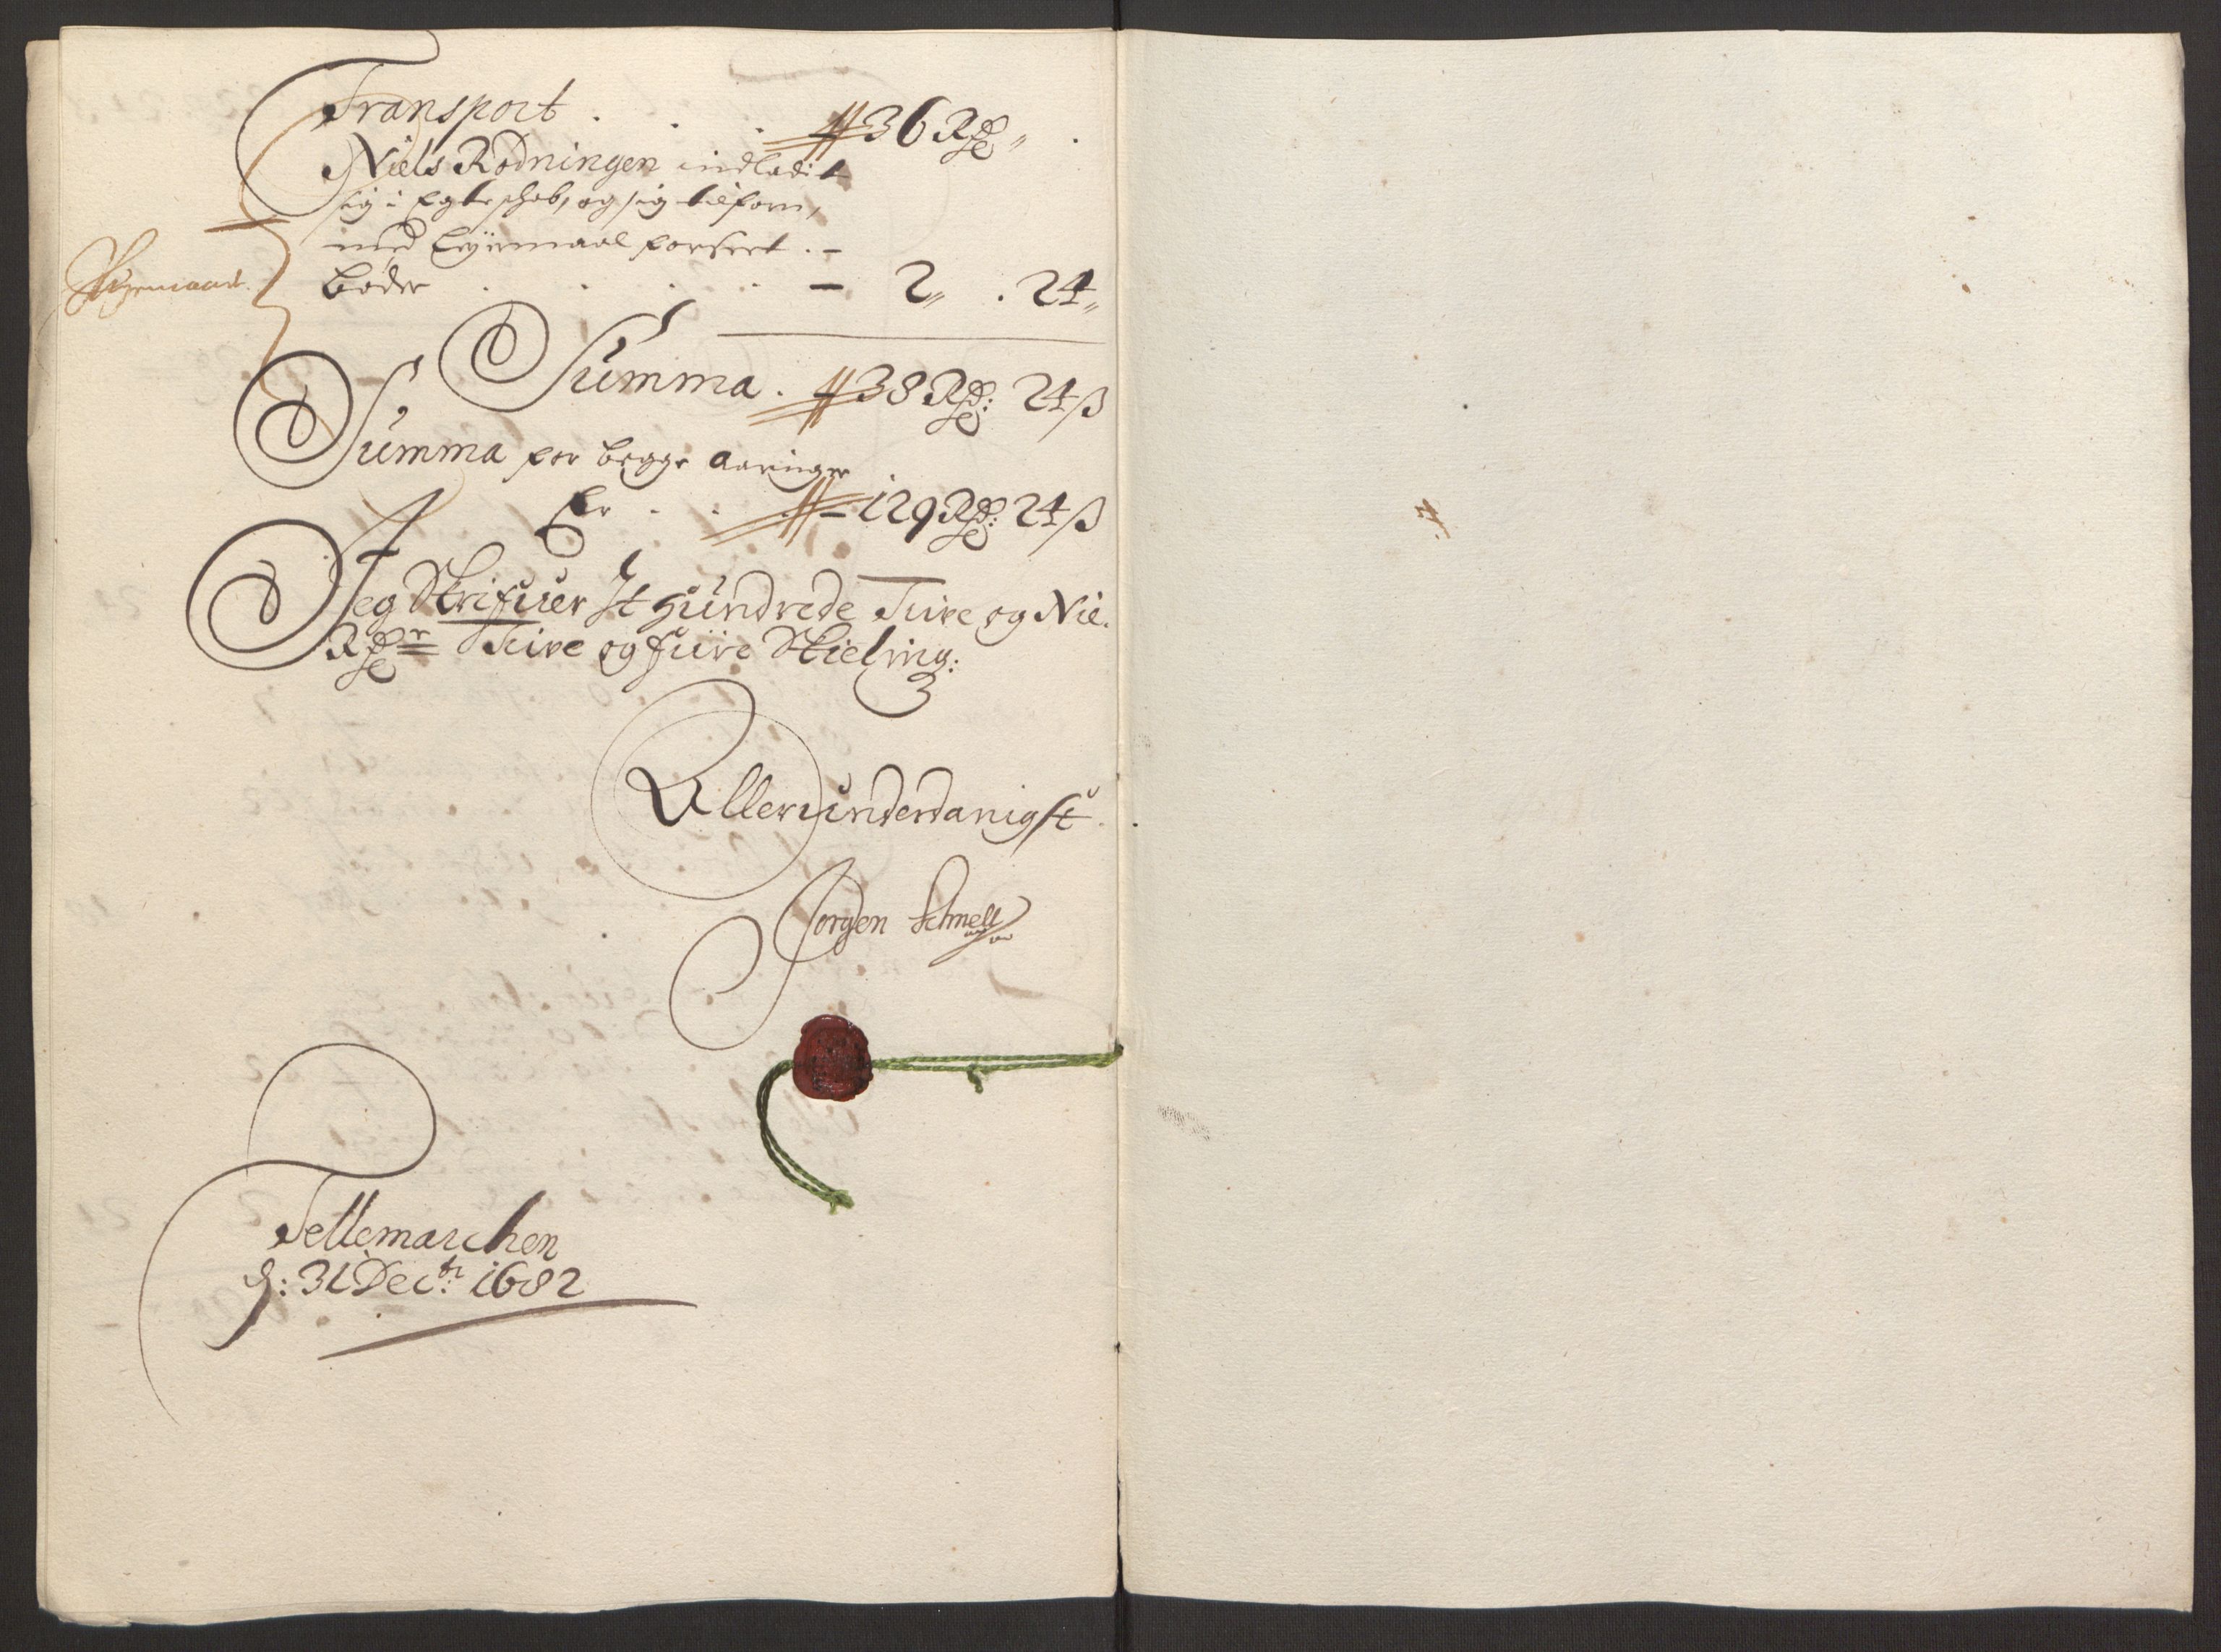 Transport . . . 36 Rdr „ .
Niels Rødningen indladit
sig i Egteschab, og sig tilforn,
med Leyermaal forseet . –
Bøder . . . . – 2 „ . 24 „
Summa . 38 Rdr: 24 ß
Summa for begge Aaringer
Er . . . – 129 Rdr: 24 ß
Jeg Skrifuer It Hundrede Tiufe og Nie .
Rdr Tiufe og fiire Skieling:
Allerunderdanigst
Jørgen Schnell
Tellemarchen
d: 31 Decbr: 1682